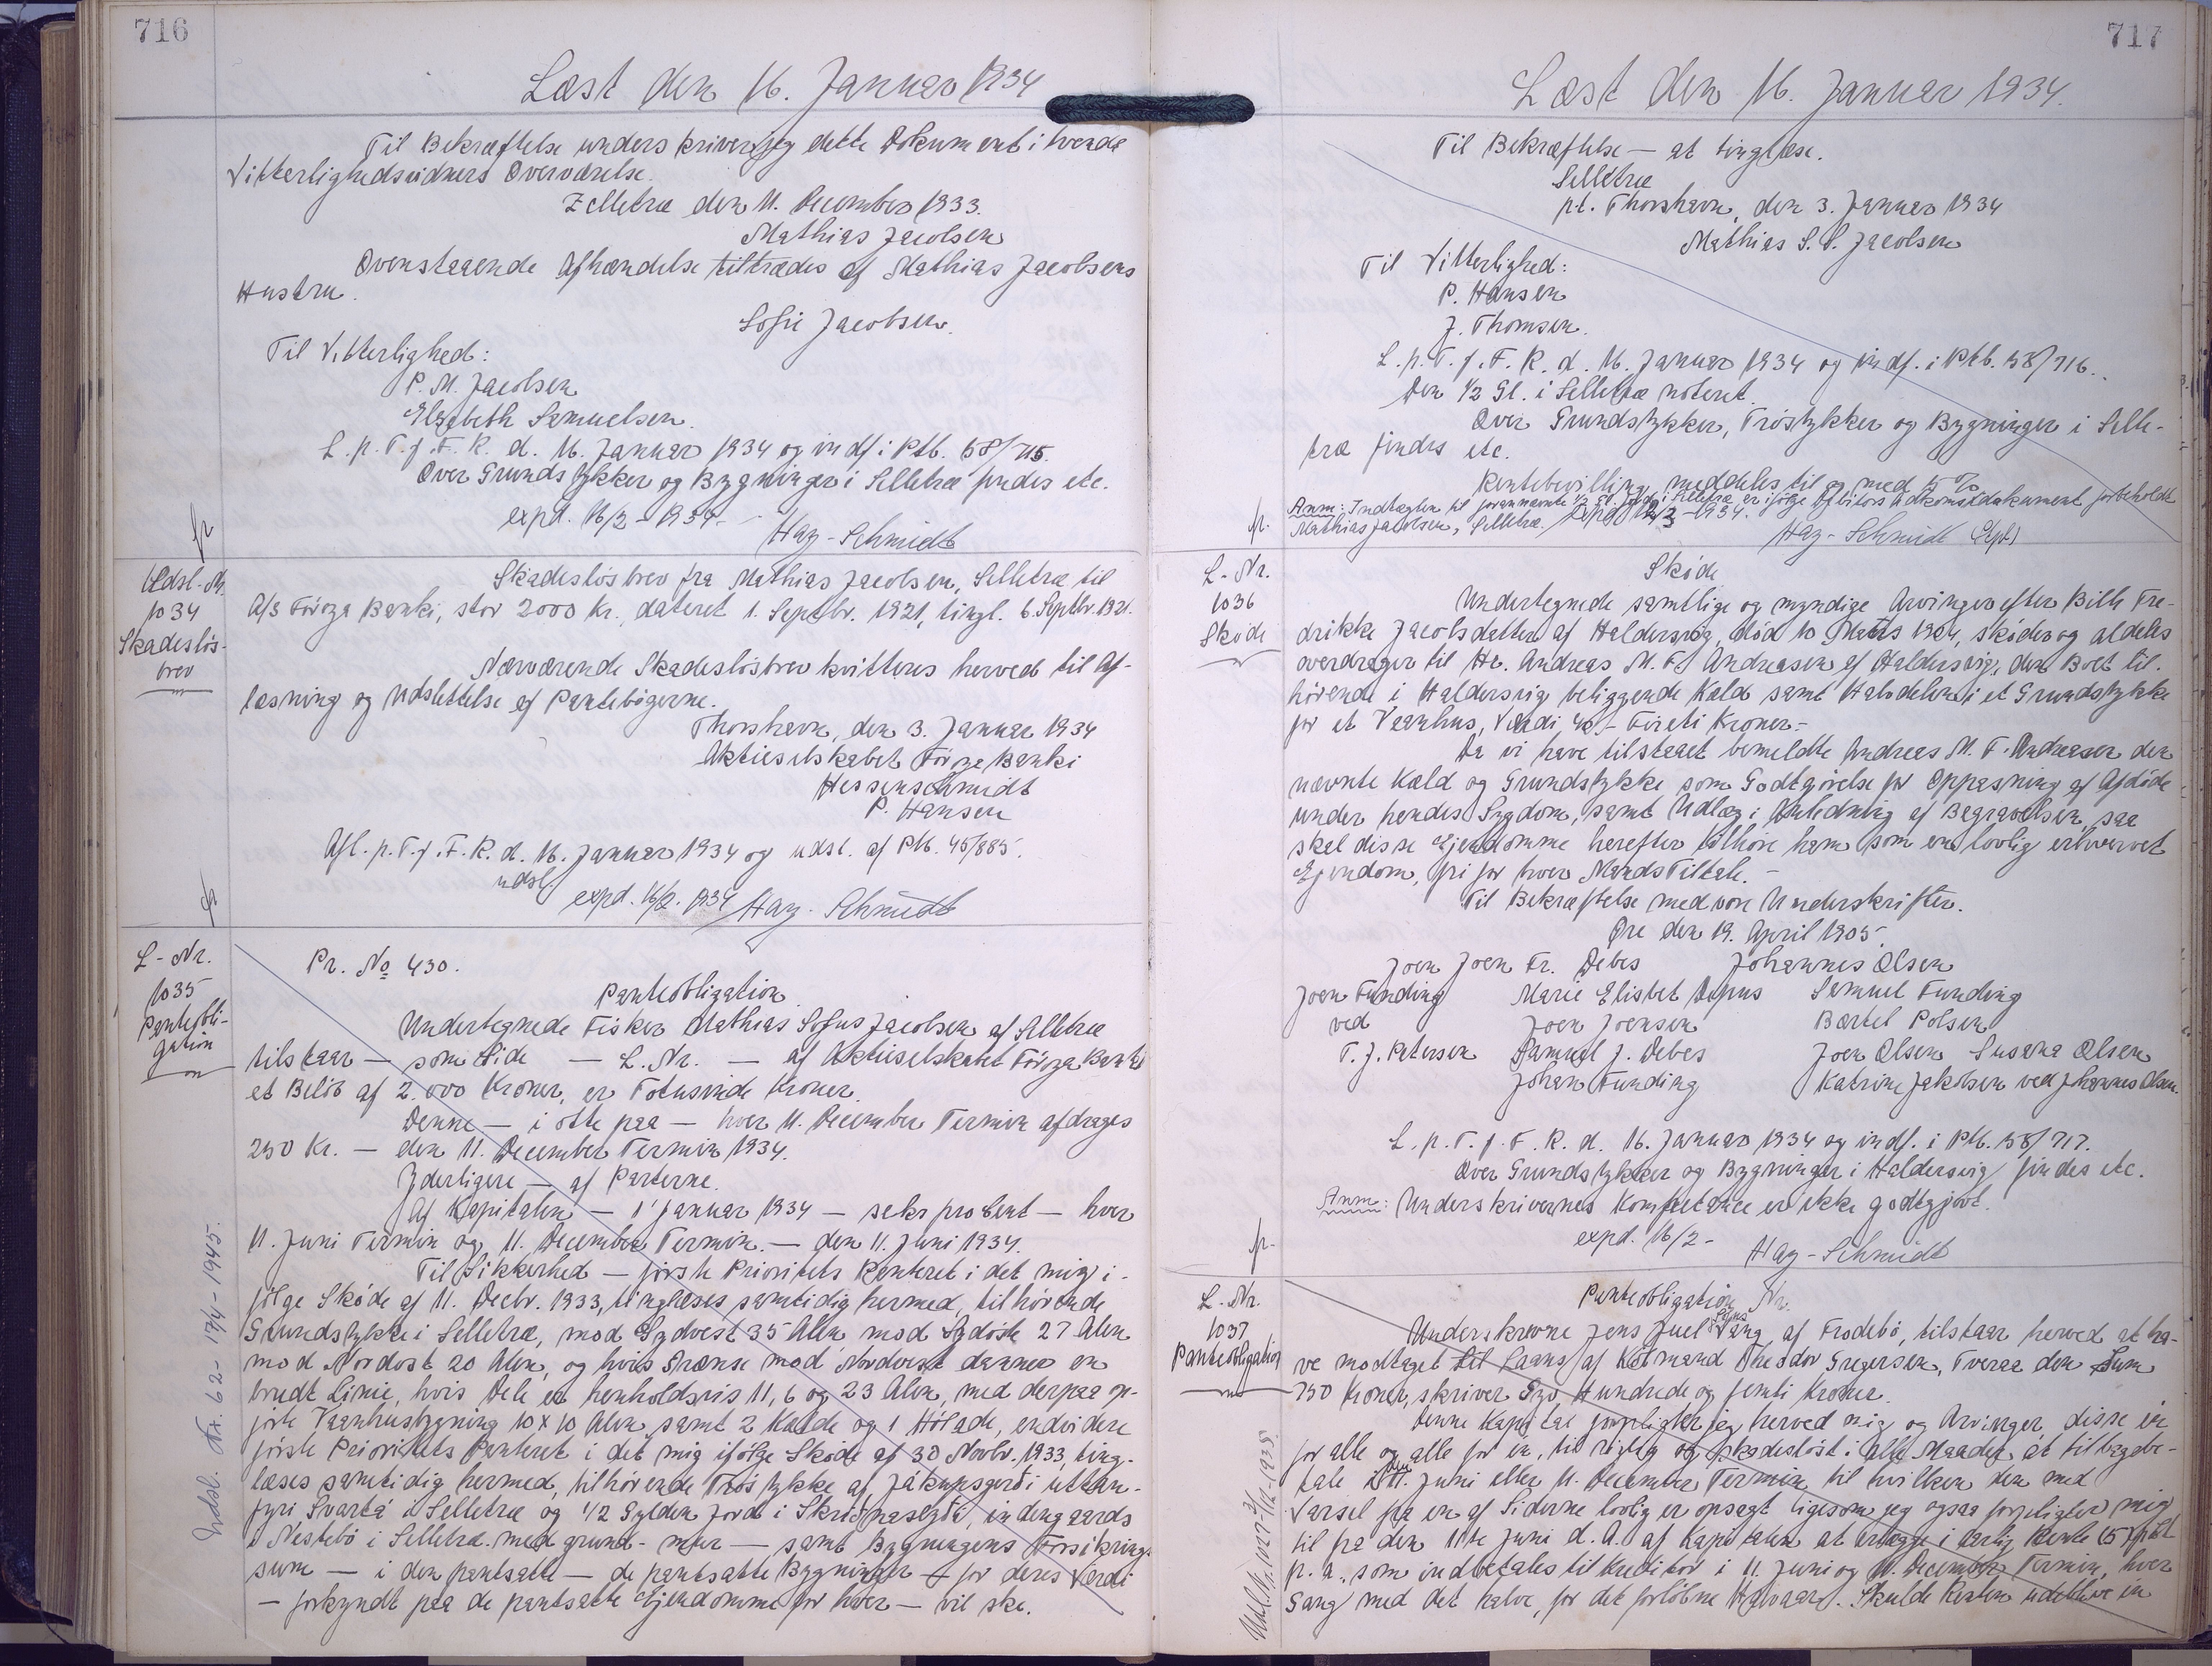 716
Læst den 16. Januar 1934
Til Bekræftelse underskriver jeg dette Dokument i tvende
Vitterlighedsvidners Overværelse.
Zelletræ den 11. December 1933.
Mathias Jacobsen
Ovenstaaende Afhændelse tiltrædes af Mathias Jacobsens
Hustru.
Sofie Jacobsen.
Til Vitterlighed:
P. M. Jacobsen
Elsebeth Samuelsen.
L. p. T. f. F. R. d. 16. Januar 1934 og indf. i Ptb. 58/715.
Over Grundstykker og Bygninger i Selletræ findes etc.
expd. 16/2 - 1934.
Hay-Schmidt
fr
Udsl.-Nr.
1034
Skadesløs-
brev
Skadesløsbrev fra Mathias Jacobsen, Selletræ til
A/S Föroya Banki, stor 2000 Kr., dateret 1. Septbr. 1921, tingl. 6. Septbr. 1921.
Nærværende Skadesløsbrev kvitteres herved til Af-
læsning og Udslettelse af Pantebøgerne.
Thorshavn, den 3. Januar 1934
Aktieselskabet Föroya Banki
Hessenschmidt
P. Hansen
Afl. p. T. f. F. R. d. 16. Januar 1934 og udsl. af Ptb. 45/885.
udsl.
expd. 16/2. 1934 Hay-Schmidt
L-Nr.
1035
Panteobli-
gation
Pr. No 430.
Panteobligation
Undertegnede Fisker Mathias Sofus Jacobsen af Selletræ
tilstaar — som Side — L. Nr. — af Aktieselskabet Föroya Banki
et Beløb af 2.000 Kroner, er Totusinde Kroner.
Denne — i otte paa — hver 11. December Termin afdrages
250 Kr. — den 11. December Termin 1934.
Yderligere — af Parterne.
Af Kapitalen — 1' Januar 1934 — seks procent — hver
11. Juni Termin og 11. December Termin. — den 11. Juni 1934.
Til Sikkerhed — første Prioritets Panteret i det mig i-
følge Skøde af 11. Decbr. 1933, tinglæses samtidig hermed, tilhørende
Grundstykke i Selletræ, mod Sydvest 35 Alen mod Sydøst 27 Alen
mod Nordost 20 Alen, og hvis Grænse mod Nordvest danner en
brudt Linie, hvis Dele er henholdsvis 11, 6 og 23 Alen, med derpaa op-
førte Vaanhusbygning 10 x 10 Alen samt 2 Kælde og 1 Hölade, endvidere
første Prioritets Panteret i det mig ifølge Skøde af 30 Novbr. 1933, ting-
læses samtidig hermed, tilhørende Tröstykke af Jákupsgerði uttan-
fyri Svartá i Selletræ og 1/2 Gylden Jord i Skriðnaseyða, indengaards
i Nestebö i Selletræ. med grund- mur — samt Bygningens Forsikrings-
sum — i den pantsatte — de pantsatte Bygninger — for deres Værdi
— forkyndt paa de pantsatte Ejendomme for hver — vil ske.
Udsl. Nr. 62 - 17/4 - 1945.
717
Læst den 16. Januar 1934.
Til Bekræftelse — at tinglæse.
Selletræ
pt. Thorshavn, den 3. Januar 1934
Mathias S. S. Jacobsen
Til Vitterlighed:
P. Hansen
J. Thomsen.
L. p. T. f. F. R. d. 16. Januar 1934 og indf. i Ptb. 58/716.
Den 1/2 Gl. i Selletræ noteret.
Over Grundstykker, Tröstykker og Bygninger i Selle-
træ findes etc.
Rentebevilling meddeles til og med 15 %
Anm: Indtægten til forannævnte 1/2 Gl. Jord i Selletræ er ifølge Debitors Adkomstdokument forbeholdt
Mathias Jacobsen, Selletræ. Expd 1934.
fr.
Hay-Schmidt
L-Nr.
1036
Skøde
Skøde
Undertegnede samtlige og myndige Arvinger efter Bille Fre-
drikke Jacobsdatter af Haldersvig, død 10 Marts 1904, skøder og aldeles
overdrager til Hr. Andreas M. F. Andreasen af Haldersvig, den Boet til-
hørende i Haldersvig beliggende Kæld samt Halvdelen i et Grundstykke
for et Vaanhus, Værdi 40,- Fireti Kroner.-
Da vi have tilstaaet bemeldte Andreas M. F. Andreasen den
nævnte Kæld og Grundstykke som Godtgørelse for Oppasning af Afdøde
under hendes Sygdom, samt Udlæg i Anledning af Begravelsen, saa
skal disse Ejendomme herefter tilhøre ham som en lovlig erhvervet
Ejendom, fri for hver Mands Tiltale. -
Til Bekræftelse med vore Underskrifter.
Øre den 19. April 1905.
Joen Joen Fr. Debes Johannes Olsen
Joen Funding Marie Elisbet Samuel Funding
ved Joen Joensen Bartel Polsen
T. J. Petersen Samual J. Debes Joen Olsen Susana Olsen
Johan Funding Katrine Jakobsen ved Johannes Olsen.
L. p. T. f. F. R. d. 16. Januar 1934 og indf. i Ptb. 58/717.
Over Grundstykker og Bygninger i Haldersvig findes etc.
Anm: Underskrivernes Kompetance er ikke godtgjort.
expd. 16/2 -
Hay-Schmidt
fr-
L-Nr.
1037
Panteobligation
Panteobligation Nr.
Underskrevne Jens Juel Vang, af Frodebö, tilstaar herved at ha-
ve modtaget til Laans af Købmand Theodor Gregersen, Tveraa den Sum
750 Kroner, skriver Syv Hundrede og femti Kroner.
Denne Kapital forpligter jeg herved mig og Arvinger, disse én
for alle og alle for én, til rigtig og skadesløst i alle Maader at tilbagebe-
tale i 11. Juni eller 11. December Termin til hvilken den med
Varsel fra en af Siderne lovlig er opsagt ligesom jeg ogsaa forpligter mig
til fra den 11te Juni d. A. af Kapitalen at erlægge i aarlig Rente (5) pCt
p. a., som indbetales til Kreditor i 11. Juni og 11. December Termin, hver
Gang med det halve, for det forløbne Halvaar. Skulde Renten udeblive en